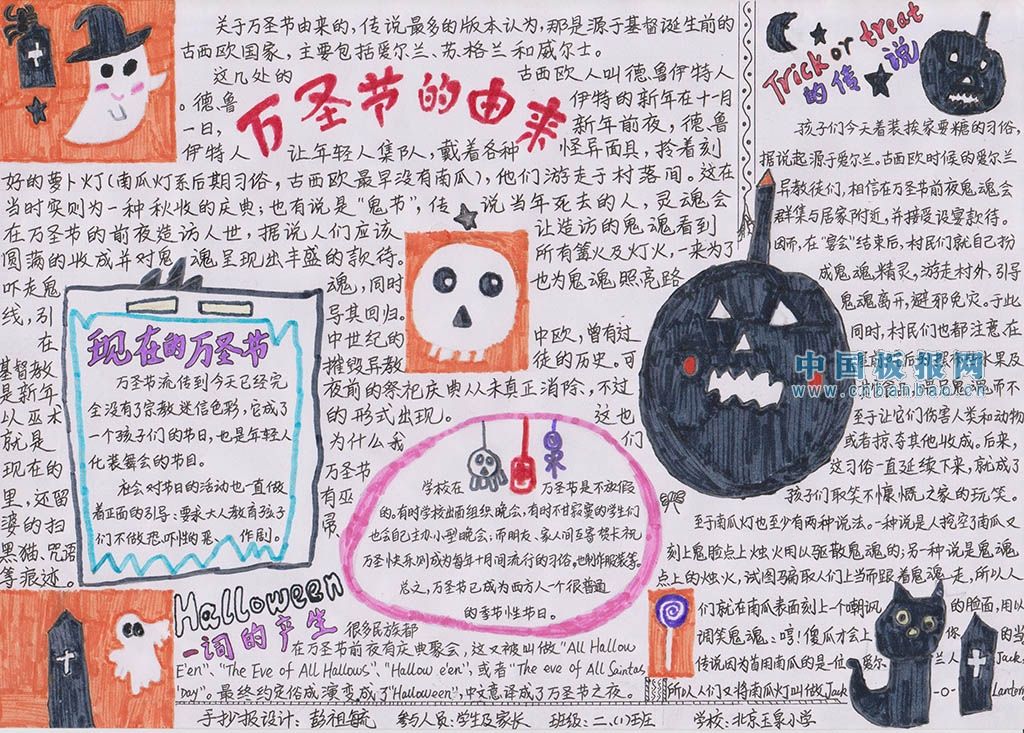 关于万圣节由来的,传说最多的版本认为,那是源于基督诞生前的
古西欧国家,主要包括爱尔兰、苏格兰和威尔士。
这几处的古西欧人叫德鲁伊特人
。德鲁伊特的新年在十一月
一日,新年前夜,德鲁
伊特人让年轻人集队,戴着各种怪异面具,拎着刻
好的萝卜灯(南瓜灯系后期习俗,古西欧最早没有南瓜),他们游走于村落间。这在
当时实则为一种秋收的庆典;也有说是“鬼节”,传说当年死去的人,灵魂会
在万圣节的前夜造访人世,据说人们应该让造访的鬼魂看到
圆满的收成并对鬼魂呈现出丰盛的款待。所有篝火及灯火,一来为了
吓走鬼魂,同时也为鬼魂照亮路
线,引导其回归。
在中世纪的中欧,曾有过
基督教摧毁异教徒的历史。可
是新年夜前的祭祀庆典从未真正消除,不过
以巫术的形式出现。这也
就是为什么我们
现在的万圣节
里,还留有巫
婆的扫帚、
黑猫、咒语
等痕迹。
万圣节的由来
现在的万圣节
万圣节流传到今天已经完
全没有了宗教迷信色彩,它成了
一个孩子们的节日,也是年轻人
化装舞会的节目。
社会对节日的活动也一直做
着正面的引导:要求大人教育孩子
们不做恐吓性的恶作剧。
学校在万圣节是不放假
的。有时学校出面组织晚会,有时不甘寂寞的学生们
也会自己主办小型晚会;而朋友、家人间互寄贺卡祝
万圣快乐则成为每年十月间流行的习俗,也制作服装等。
总之,万圣节已成为西方人一个很普通
的季节性节日。
Halloween
一词的产生
很多民族都
在万圣节前夜有庆典聚会,这又被叫做"All Hallow
E'en"、"The Eve of All Hallows"、"Hallow e'en",或者"The eve of All Saintas
'Day"。最终约定俗成演变成了"Halloween",中文意译成了万圣节之夜。
Trick or treat
的传说
孩子们今天着装挨家要糖的习俗,
据说起源于爱尔兰。古西欧时候的爱尔兰
异教徒们,相信在万圣节前夜鬼魂会
群集与居家附近,并接受设宴款待。
因而,在“宴会”结束后,村民们就自己扮
成鬼魂精灵,游走村外,引导
鬼魂离开,避邪免灾。于此
同时,村民们也都注意在
果及
而不
至于让它们伤害人类和动物
或者掠夺其他收成。后来,
这习俗一直延续下来,就成了
孩子们取笑不慷慨之家的玩笑。
至于南瓜灯也至少有两种说法。一种说是人挖空了南瓜又
刻上鬼脸点上烛火用以驱散鬼魂的;另一种说是鬼魂
点上的烛火,试图骗取人们上当而跟着鬼魂走,所以人
们就在南瓜表面刻上个嘲讽的脸面,用以
调笑鬼魂:哼!傻瓜才会上你的当
传说因为首用南瓜的是一位爱尔兰人Jack,
所以人们又将南瓜灯叫做Jack-o-Lantern
中国板报网
www.cnbanbao.cn
手抄报设计:彭祖毓 参与人员:学生及家长 班级:二、(1)班 学校:北京玉泉小学